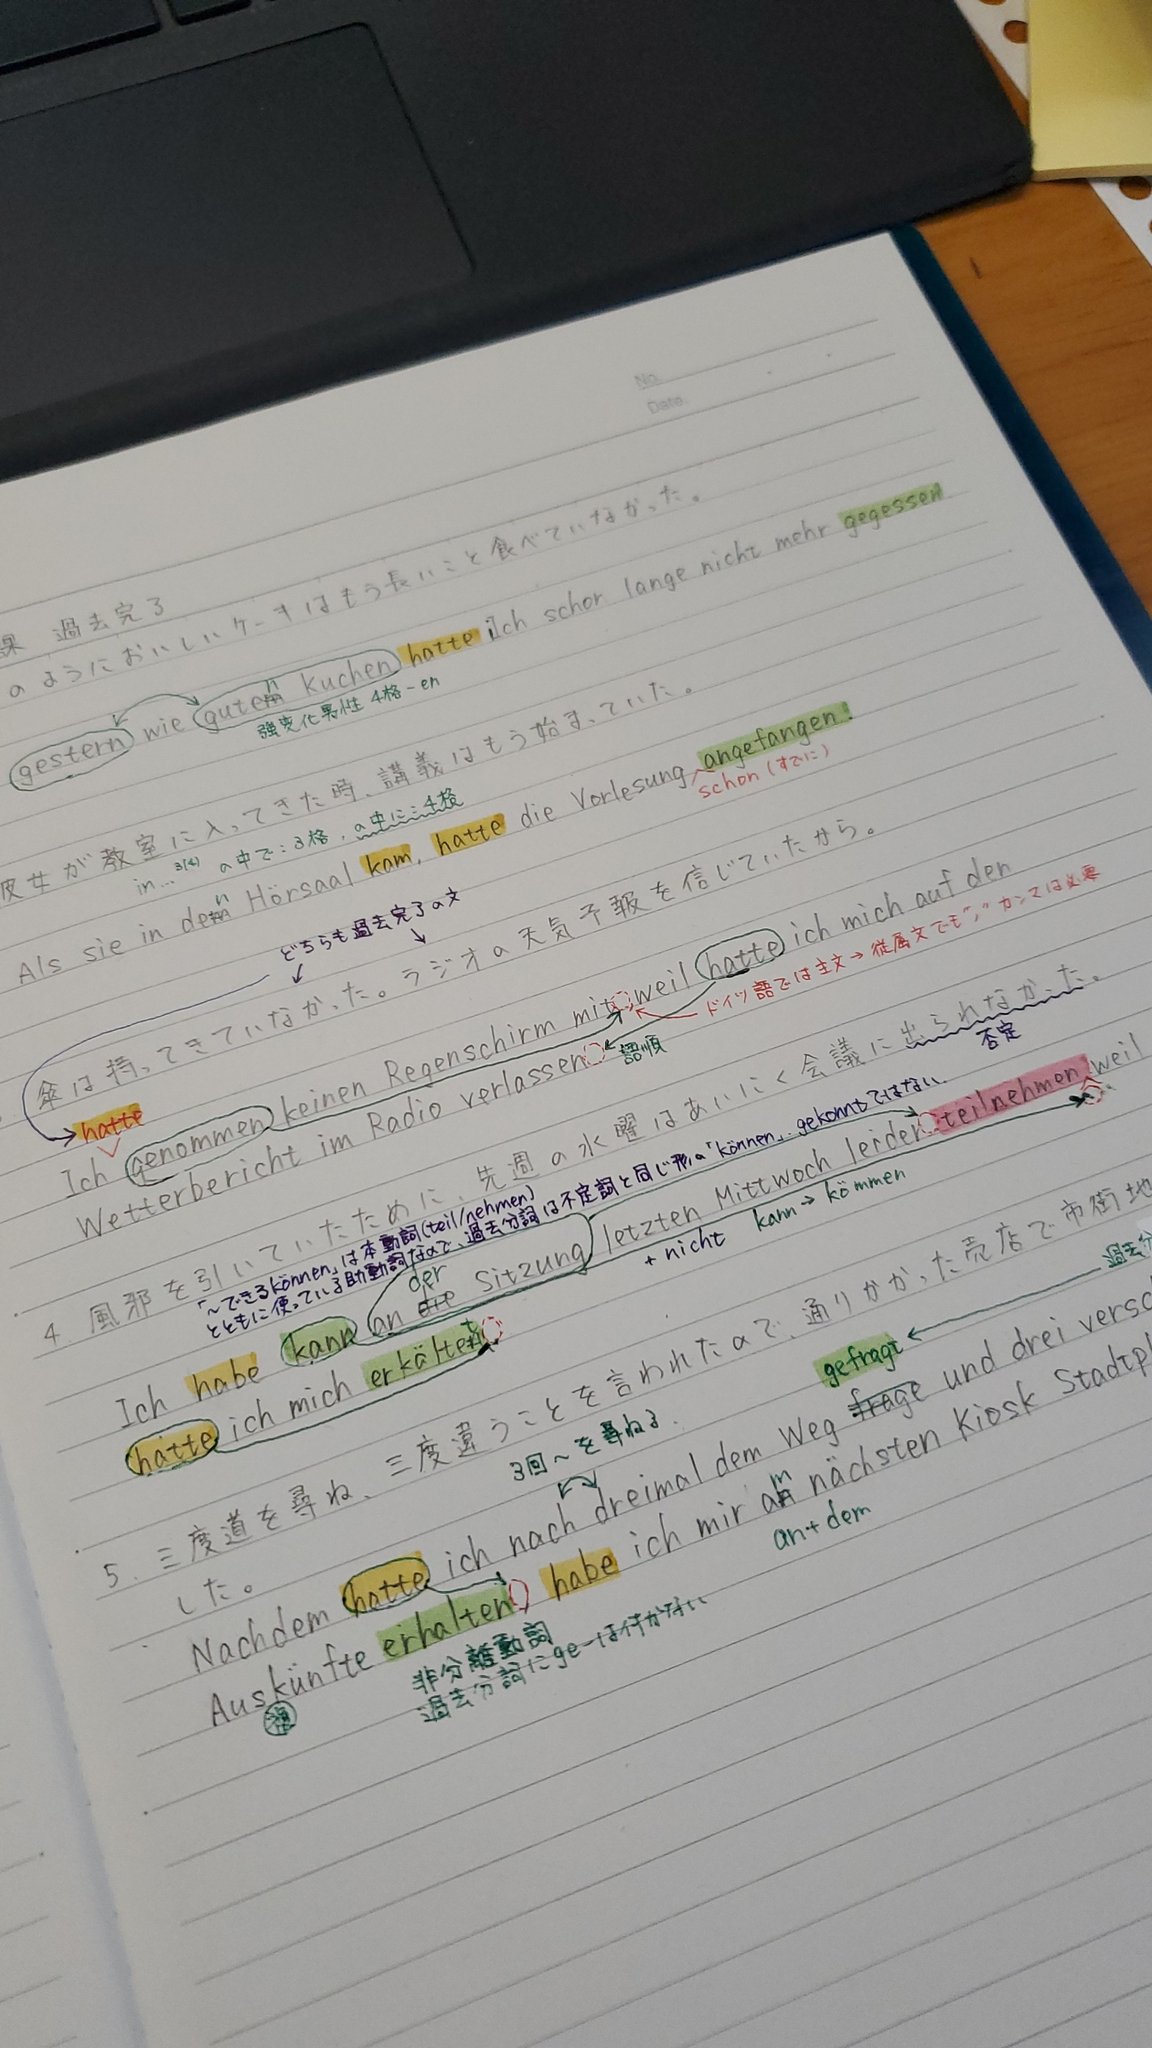 No.
Date
課 過去完了
のようにおいしいケーキはもう長いこと食べていなかった。
gestern wie guten kuchen hatte ich schor lange nicht mehr gegessen
強変化男性 4格-en
彼女が教室に入ってきた時、講義はもう始まっていた。
in... 3(4) の中で:3格、の中に:4格
Als sie in den Hörsaal kam, hatte die Vorlesung angefangen!
schon (すでに)
どちらも過去完了の文
傘は持ってきていなかった。ラジオの天気予報を信じていたから。
hatte
Ich genommen keinen Regenschirm mit weil hatte ich mich auf den
ドイツ語では主文→従属文でも"," カンマは必要
Wetterbericht im Radio verlassen
語順
4. 風邪を引いていたために、先週の水曜はあいにく会議に出られなかった。
否定
「~できるkönnen」は本動詞(teil/nehmen)
とともに使っている助動詞なので、過去分詞は不定詞と同じ形の「können」. gekonntではない.
der
Ich habe kann an die Sitzung letzten Mittwoch leider teilnehmen weil
+ nicht kann→kömmen
hatte ich mich erkältet
5. 三度道を尋ね、三度違うことを言われたので、通りかかった売店で市街地
した。
3回~を尋ねる.
gefragt
過去分
Nachdem hatte ich nach dreimal dem Weg frage und drei versc
Auskünfte erhalten, habe ich mir am nächsten Kiosk Stadtpl
an+dem
非分離動詞
過去分詞にge-は付かない